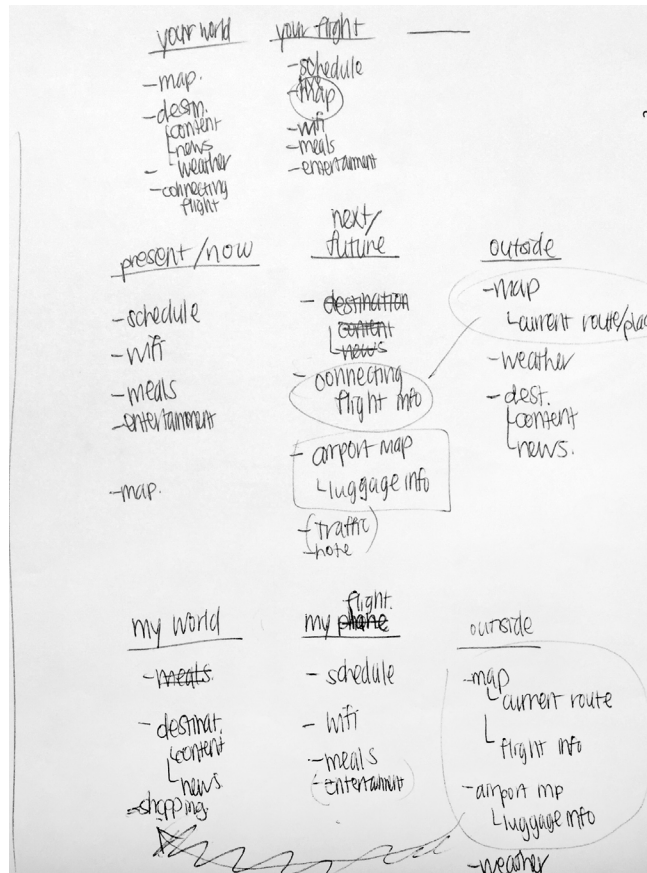 your world
- map.
- destn.
content
news
- weather
- connecting
flight
your flight
- schedule
live
- map
- wifi
- meals
- entertainment
present/now
- schedule
- wifi
- meals
- entertainment
- map.
next/
future
- destination
content
news
- connecting
flight info
- airport map
luggage info
- traffic
- note
outside
- map
current route/plac
- weather
- dest.
content
news.
my world
- meals.
- destinat.
content
news.
- shopping.
flight.
my plane
- schedule
- wifi
- meals
- entertainment
outside
- map
current route
flight info
- airport mp
luggage info
- weather